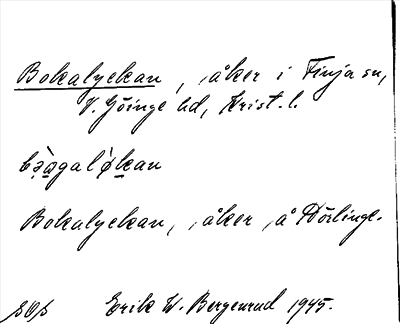 Bokalyckan, åker i Finja sn,
V. Göinge hd, Krist. l.
Bokalyckan, åker å Dörlinge.
Erik W. Bergenrud 1945.